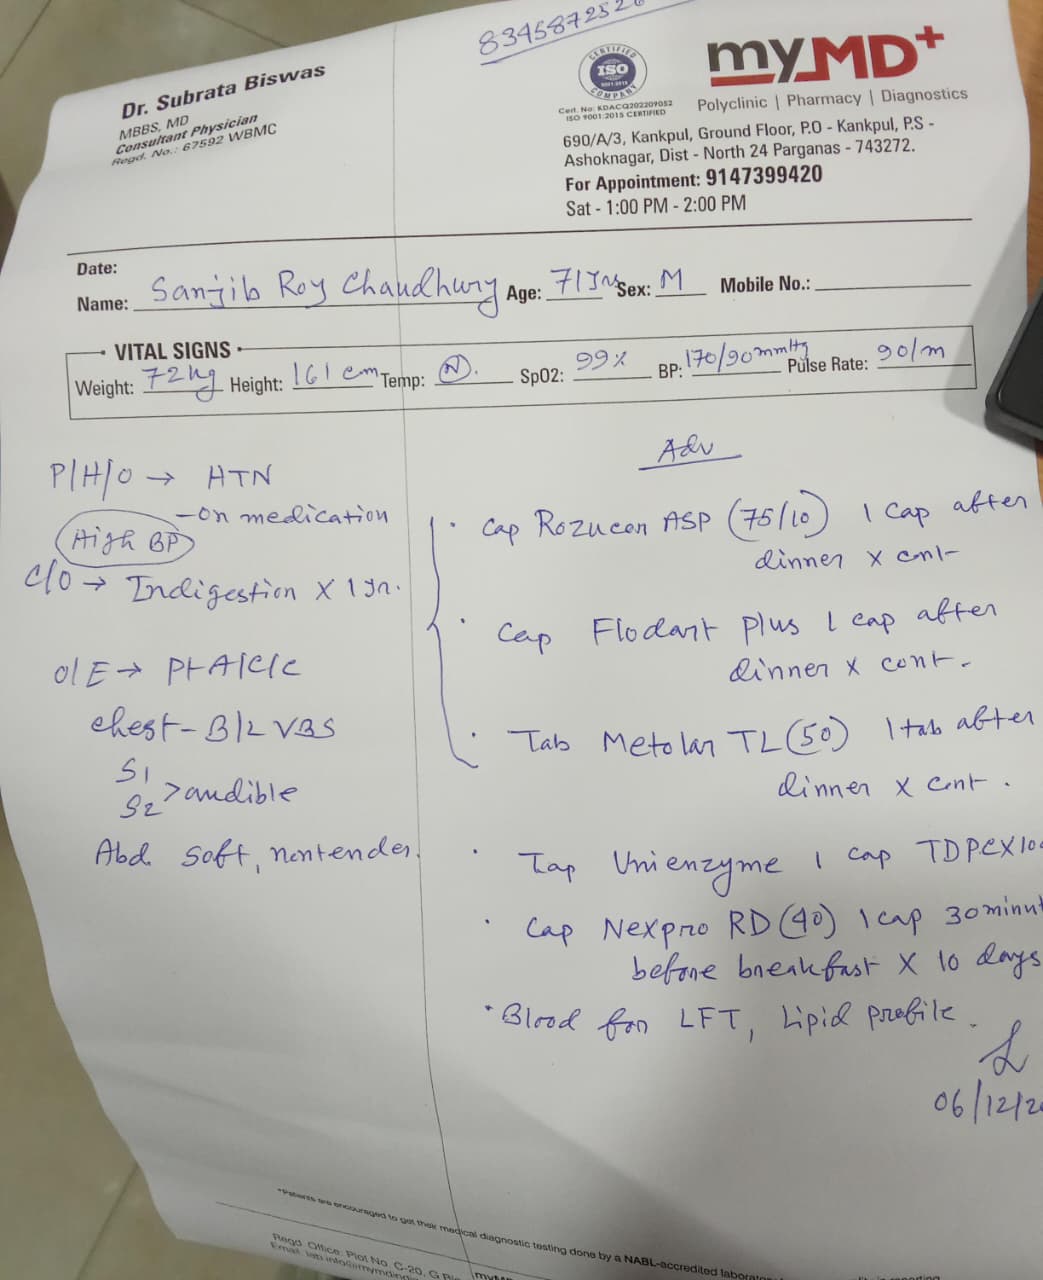 Dr. Subrata Biswas
MBBS, MD
Consultant Physician
Regd. No.: 67592 WBMC
CERTIFIED
ISO
9001:2015
COMPANY
Cert. No: KDACQ202209052
ISO 9001:2015 CERTIFIED
myMD+
Polyclinic | Pharmacy | Diagnostics
690/A/3, Kankpul, Ground Floor, P.O - Kankpul, P.S -
Ashoknagar, Dist - North 24 Parganas - 743272.
For Appointment: 9147399420
Sat - 1:00 PM - 2:00 PM
Date:
Name: Sanjib Roy Chaudhury Age: 71 yrs Sex: M Mobile No.:
VITAL SIGNS
Weight: 72 kg Height: 161 cm Temp: N. SpO2: 99% BP: 170/90 mmHg Pulse Rate: 90/m
P/H/O → HTN
- on medication
High BP
C/O → Indigestion X 1 yr.
O/E → Pt A/C/C
chest - B/L VBS
S1
S2 > audible
Abd soft, nontender.
Adv
Cap Rozucor ASP (75/10) 1 cap after
dinner x cont
Cap Flodart plus 1 cap after
dinner x cont.
Tab Metolar TL (50) 1 tab after
dinner x cont.
Unienzyme 1 cap TDPC X 10
Cap Nexpro RD (40) 1 cap 30 minut
before breakfast X 10 days
Blood for LFT, Lipid profile.
06/12/2
*Patients are encouraged to get their medical diagnostic testing done by a NABL-accredited
Regd. Office: Plot No. C-20, G